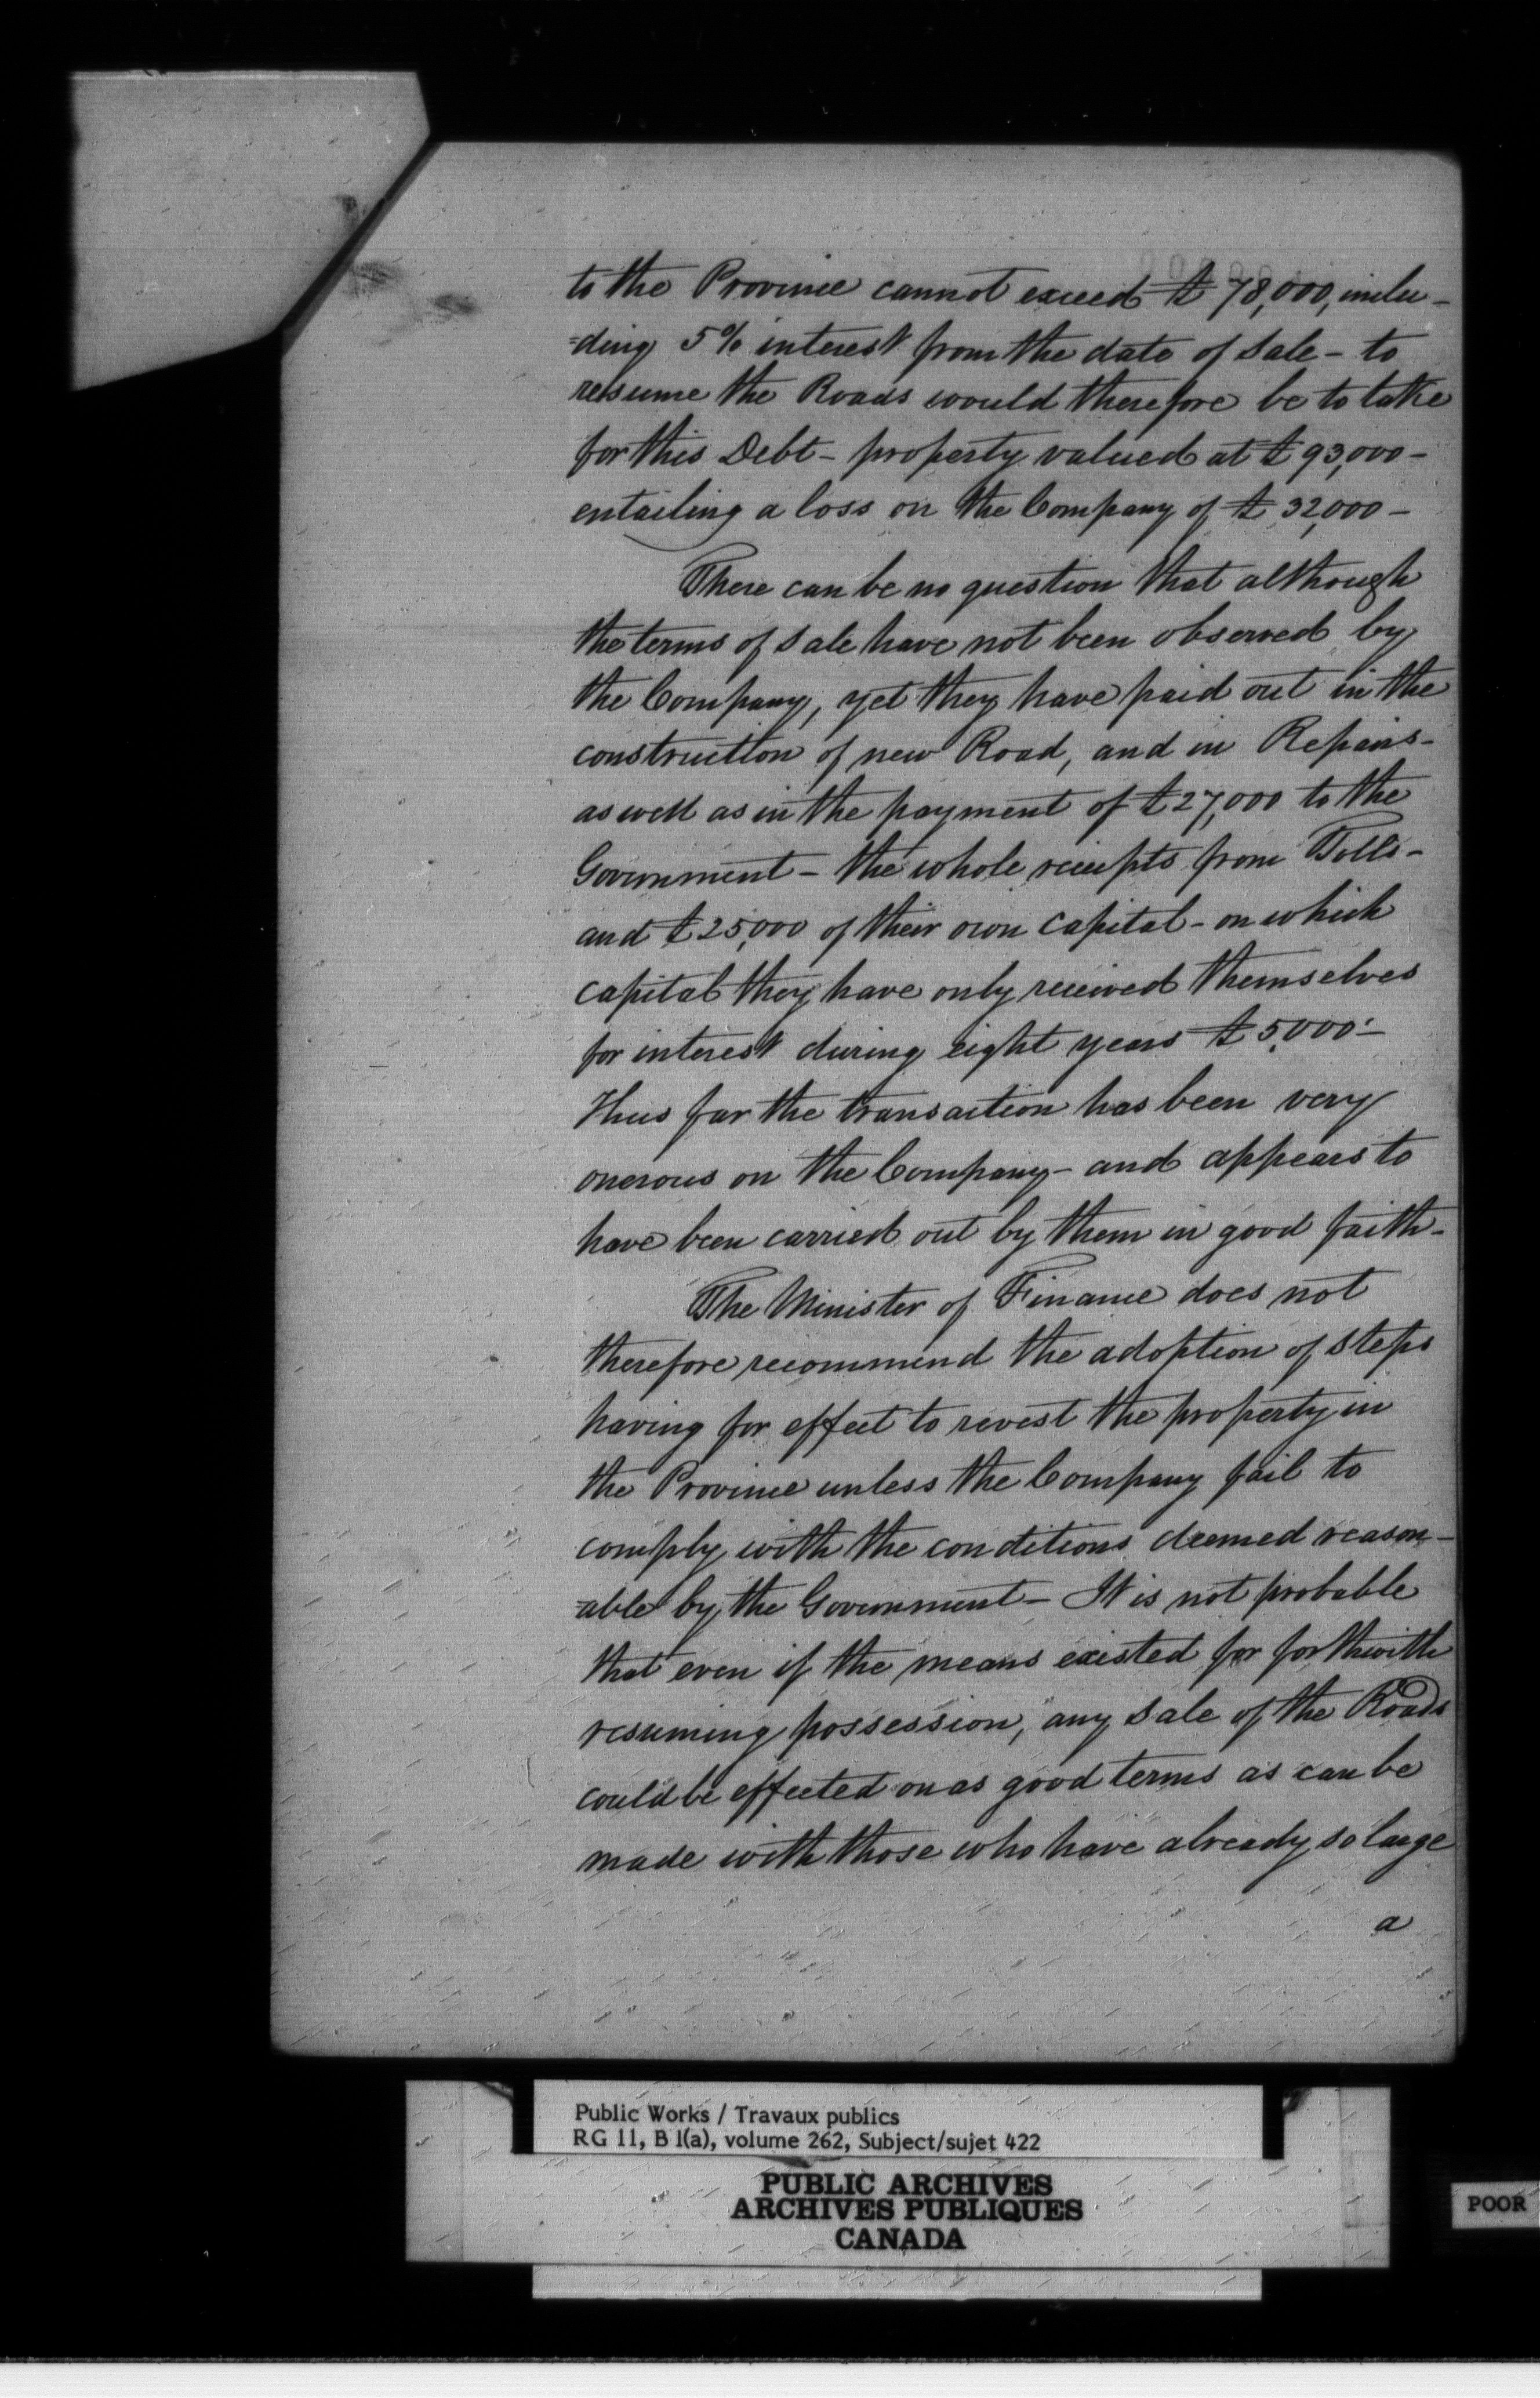 to the Province cannot exceed £ 78,000, inclu-
=ding 5% interest from the date of Sale - to
resume the Roads would therefore be to take
for this Debt - property valued at £ 93,000 -
entailing a loss on the Company of £ 32,000 -
There can be no question that although
the terms of Sale have not been observed by
the Company, yet they have paid out in the
construction of new Road, and in Repairs -
as well as in the payment of £27,000 to the
Government - the whole receipts from Tolls -
and £25,000 of their own Capital - on which
capital they have only received themselves
for interest during eight years £5,000 -
Thus far the transaction has been very
onerous on the Company - and appears to
have been carried out by them in good faith -
The Minister of Finance does not
therefore recommend the adoption of steps
having for effect to revest the property in
the Province unless the Company fail to
comply with the conditions deemed reason-
=able by the Government - It is not probable
that even if the means existed for forthwith
resuming possession, any Sale of the Roads
could be effected on as good terms as can be
made with those who have already so large
a
Public Works / Travaux publics
RG 11, B 1(a), volume 262, Subject/sujet 422
PUBLIC ARCHIVES
ARCHIVES PUBLIQUES
CANADA
POOR